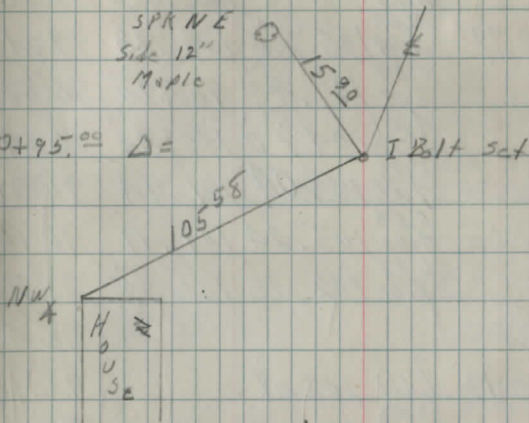 SPK N E
Side 12"
Maple
15.90
0+95.00 Δ=
I Bolt Set
105.58
NW
House